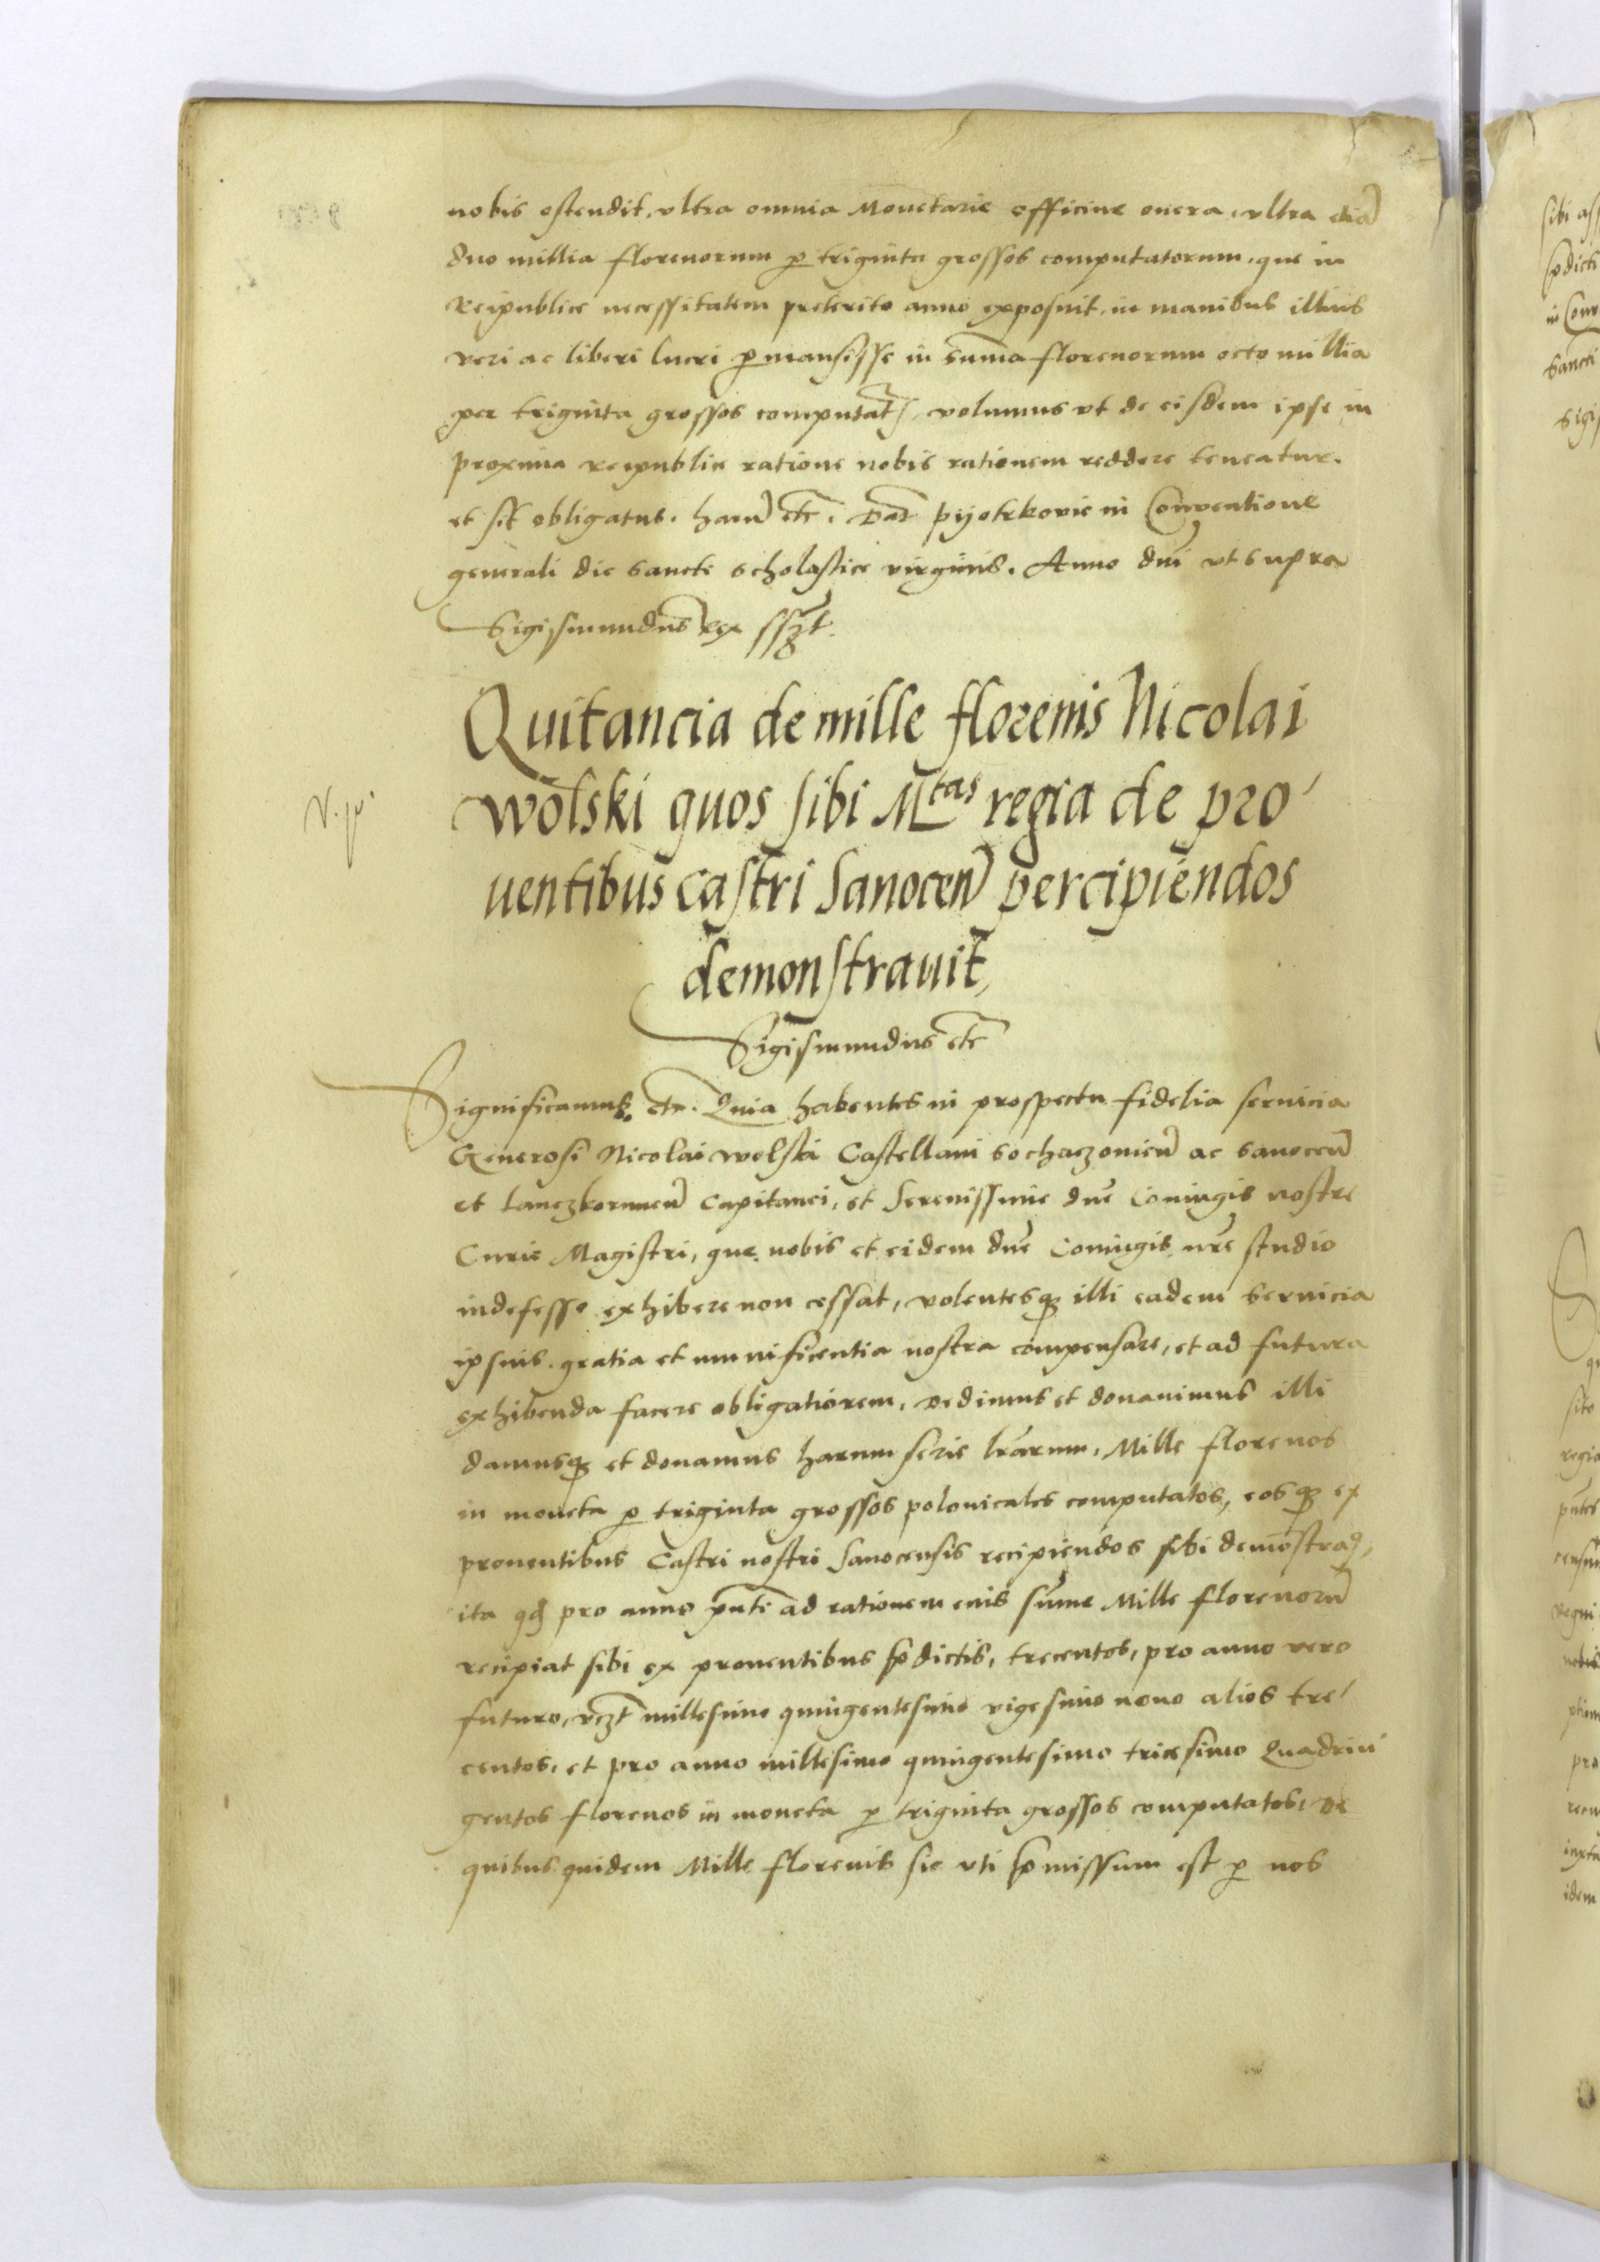 nobis ostendit, vltra omnia Monetarie officine onera, vltra etiā
duo millia florenorum p triginta grossos computatorum, que in
Reipublice necessitatem preterito anno exposuit, in manibus illius
veri ac liberi lucri pmansisse in suma florenorum octo millia
per triginta grossos computat, volumus vt de eisdem ipse in
proxima reipublice ratione nobis rationem reddere teneatur.
et sit obligatus. harū etc. Dat pijotrkovie in Conventione
generali die sancte scholastice virginis. Anno dni vt supra
Sigismundus Rex sszt
Quitancia de mille florenis Nicolai
wolski quos sibi Mtas regia de pro
uentibus castri Sanocen percipiendos
demonstrauit,
Sigismundus etc
Significamus etc. Quia habentes in prospectu fidelia seruicia
Generosi Nicolai wolski Castellani Sochaczouien ac Sanocen
et Lanczkorunen Capitanei, et Serenissime dne Coniugis nostre
Curie Magistri, que nobis et eidem dne Coniugis nre studio
indefesso exhibere non cessat, volentesq illi eadem Seruicia
ipsius gratia et munificentia nostra compensare, et ad futura
exhibenda facere obligatiorem, Dedimus et donauimus illi
damusq et donamus harum serie lrarum, Mille florenos
in moneta p triginta grossos polonicales computatos, eosq ex
prouentibus Castri nostri Sanocensis recipiendos sibi demōstra,
ita qd pro anno pnti ad rationem eius sume Mille florenorū
recipiat sibi ex prouentibus pdictis, trecentos, pro anno vero
futuro, vzt millesimo quingentesimo vigesimo nono alios tre
centos, et pro anno millesimo quingentesimo tricesimo Quadrin
gentos florenos in moneta p triginta grossos computatos, De
quibus quidem Mille florenis sic vti pmissum est p nos